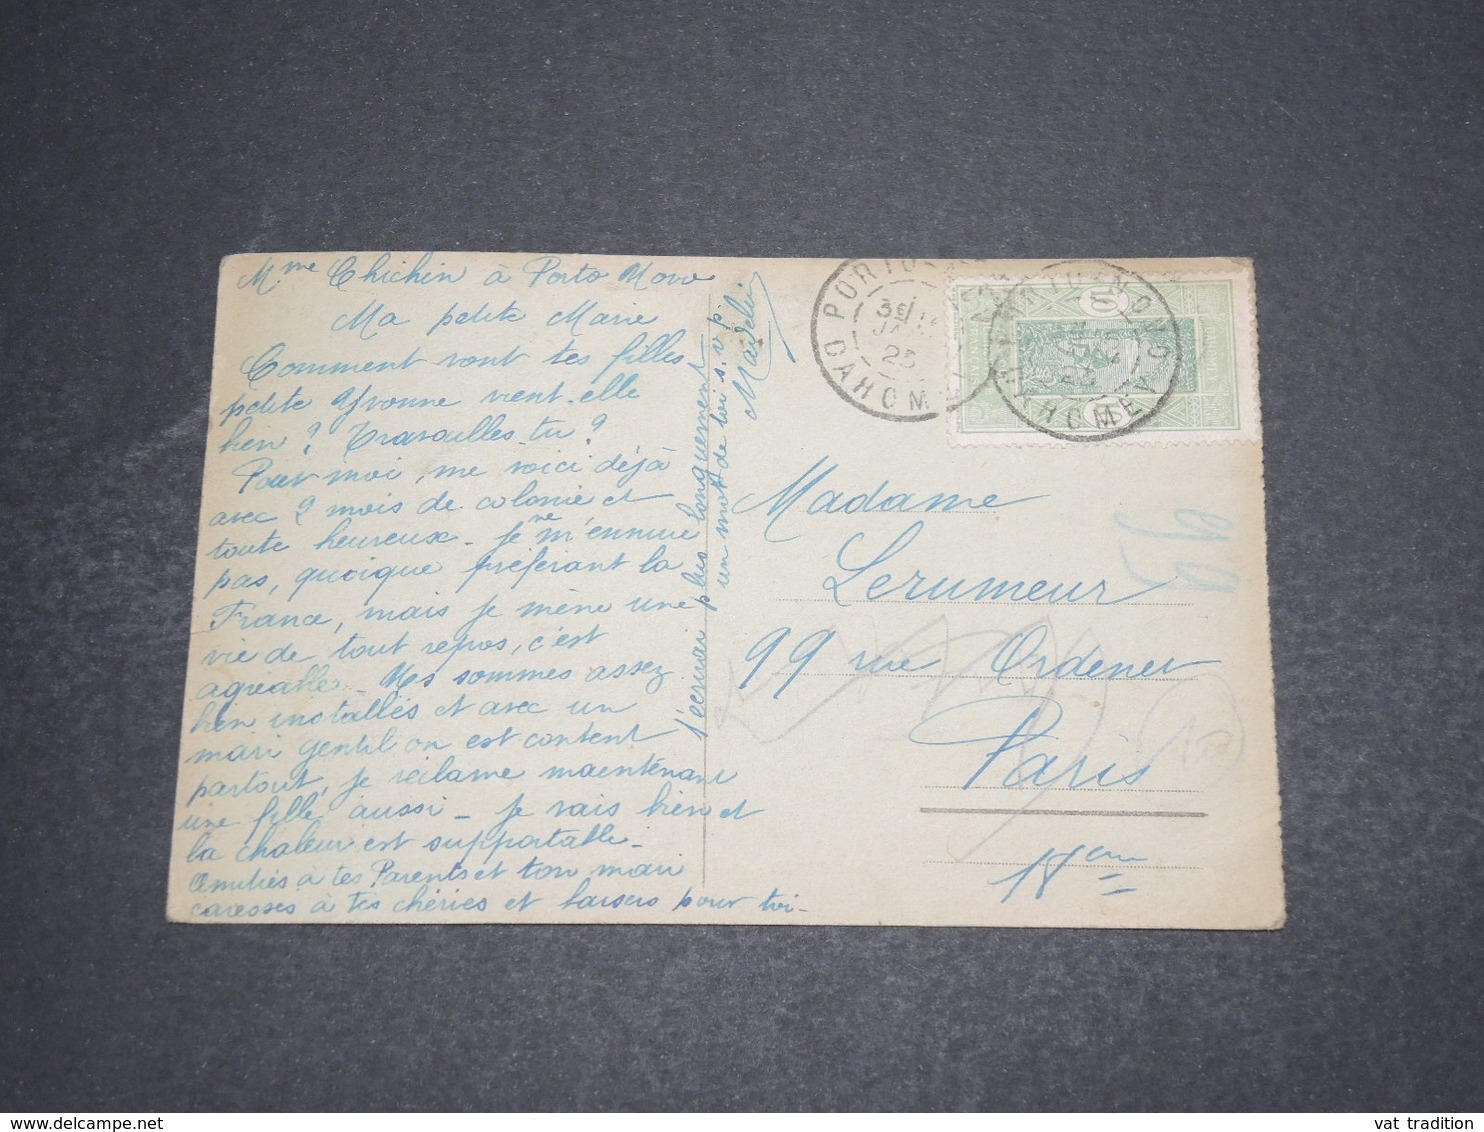 Mme Chichin à Porto Novo
Ma petite Marie
Comment vont tes filles
petite Yvonne vient-elle
bien? Travailles-tu?
Pour moi, me voici déjà
avec 2 mois de colonie et
toute heureuse - Je ne m'ennuie
pas, quoique préférant la
France, mais je mène une
vie de tout repos, c'est
agréable - Ns sommes assez
bien installés et avec un
mari gentil on est content
partout, je réclame maintenant
une fille aussi - Je vais bien et
la chaleur est supportable -
Amitiés à tes Parents et ton mari
caresses à tes chéries et baisers pour toi -
t'écrirai plus longuement
un mot de toi s.v.p.
Madelin
PORTO-NOVO
JANV
23
DAHOMEY
PORTO-NOVO
23
DAHOMEY
10
Madame
Lerumeur
99 rue Ordener
Paris
18eme
vat tradition
www.delcampe.net